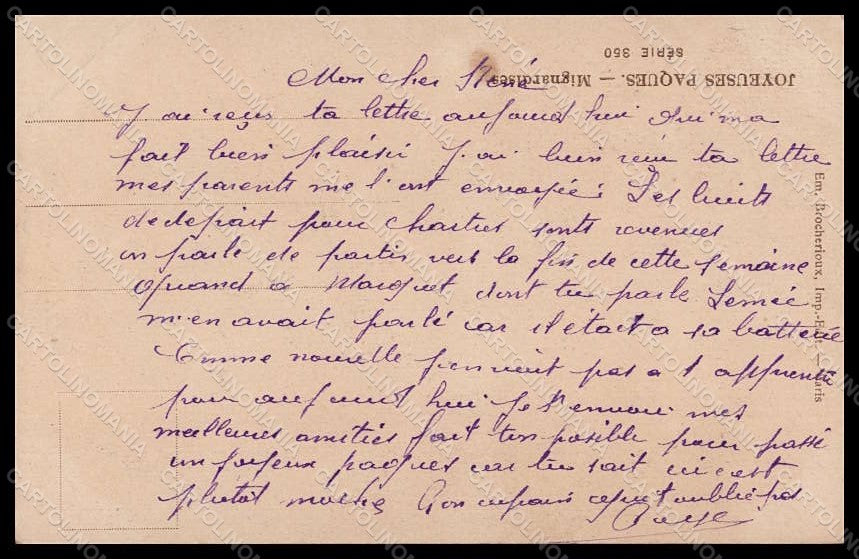 JOYEUSES PAQUES. — Mignardises
SÉRIE 350
Mon cher René
J'ai reçus ta lettre aujourd hui qui ma
fait bien plaisir J'ai bien reçu ta lettre
mes parents me l'ont envoyée. Les bruits
de depart pour Chartres sont revenues
on parle de partir vers la fin de cette semaine
Quand a Marquet dont tu parle
m'en avait parlé car il était a sa batterie
Comme nouvelle pas a t
pour aujourd hui Je t'envoi mes
meilleures amitiés fait ton posible pour passé
un joyeux paques car tu sait ici c'est
plutot moche
Em. Brocherioux, Imp.-Edit. — Paris
CARTOLINOMANIA